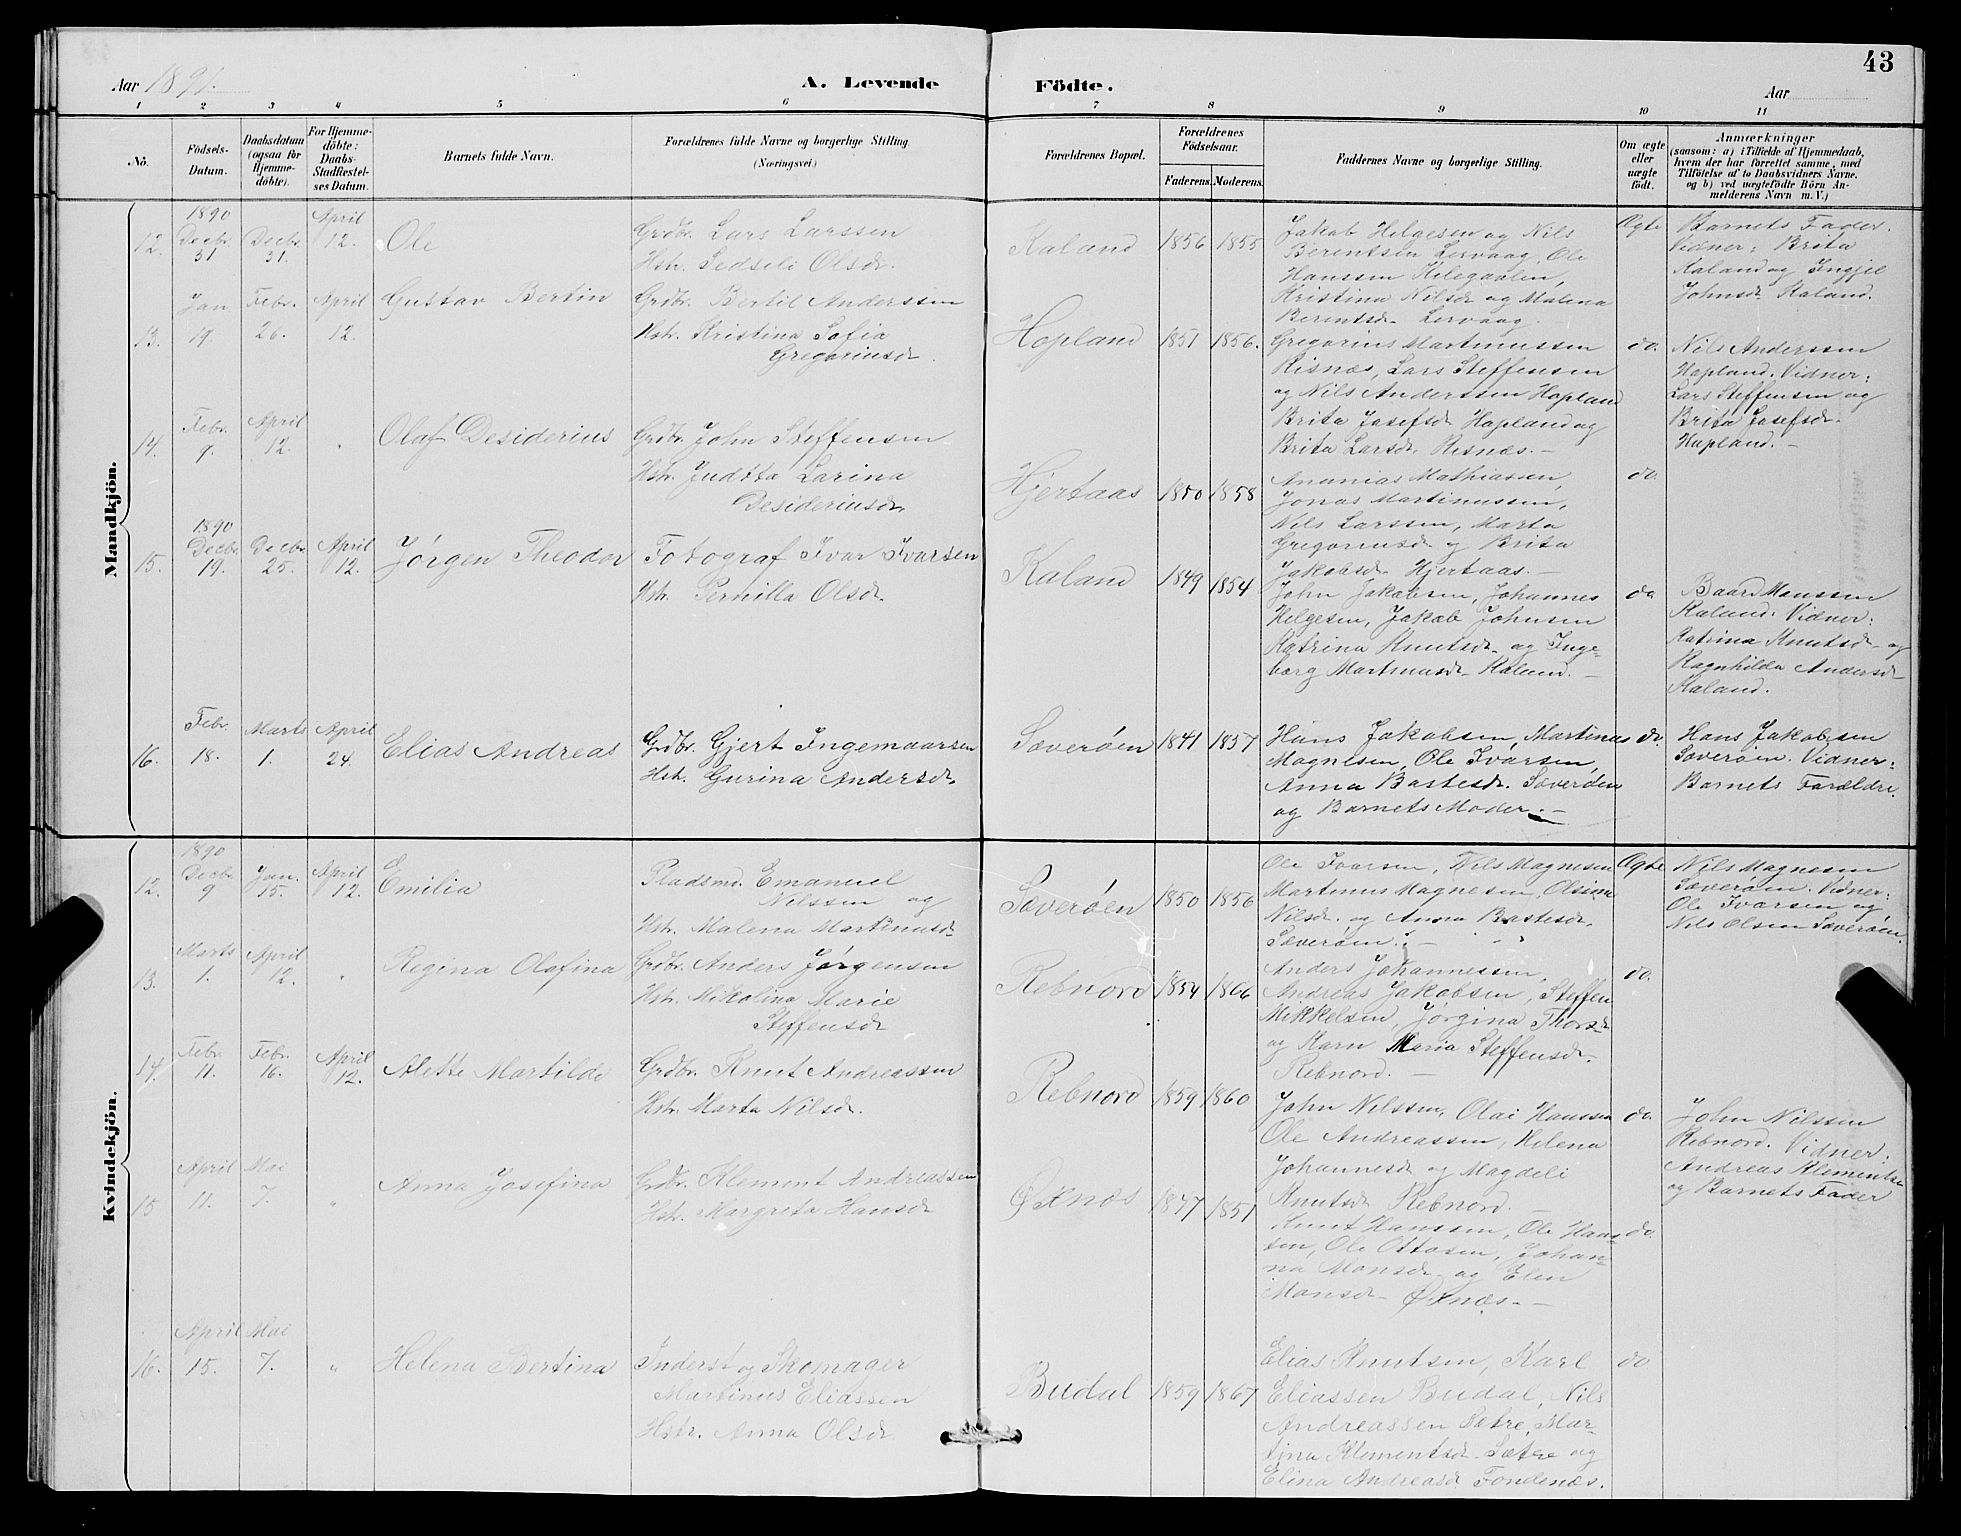 43
Aar 1891.
A. Levende Födte.
Aar
1 2 3 4 5 6 7 8 9 10 11
No.
Födsels-Datum.
Daabsdatum (ogsaa for Hjemmedöbte).
For Hjemmedöbte: Daabs-Stadfæstelses Datum.
Barnets fulde Navn.
Forældrenes fulde Navne og borgerlige Stilling.
(Næringsvei.)
Forældrenes Bopæl.
Forældrenes Födselsaar.
Faderens. Moderens.
Faddernes Navne og borgerlige Stilling.
Om ægte eller uægte födt.
Anmærkninger
(saasom: a) i Tilfælde af Hjemmedaab, hvem der har forrettet samme, med Tilföielse af to Daabsvidners Navne. og b) ved uægtefödte Börn Anmelderens Navn m. V.)
Mandkjön.
12.
1890 Decbr. 31
Decbr. 31.
April 12.
Ole
Grdbr. Lars Larssen
Hstr. Sedseli Olsdr.
Kaland
1856 1855
Jakob Helgesen og Nils
Berentsen Lervaag, Ole
Hanssen Kilegaalen,
Kristina Nilsdr og Malena
Berentsdr Lervaag.
Ægte
Barnets Fader.
Vidner: Brita
Kaland og Ingjel
Johnsdr Kaland.
13.
Jan 19.
Febr. 26.
April 12.
Gustav Bertin
Grdbr. Bertil Anderssen
Hstr. Kristina Sofia
Gregoriusdr.
Hopland
1851 1856.
Gregorius Martinussen
Risnæs, Lars Steffensen
og Nils Anderssen Hopland
Brita Josefsdr Hopland og
Brita Larsdr. Risnæs. –
do.
Nils Anderssen
Hopland. Vidner:
Lars Steffensen og
Brita Josefsdr.
Hopland. –
14.
Febr. 9.
April 12.
"
Olaf Desiderius
Grdbr. John Steffensen
Hstr. Juditta Larina
Desideriusdr.
Hjertaas
1850 1858
Ananias Mathiassen,
Jonas Martinussen,
Nils Larssen, Marta
Gregoriusdr og Brita
Jakobsdr Hjertaas. –
do.
15.
1890 Decbr. 19.
Decbr. 25.
April 12.
Jørgen Theodor
Fotograf Ivar Ivarsen
Hstr. Pernilla Olsdr.
Kaland
1849 1854
John Jakobsen, Johannes
Helgesen, Jakob Johnsen
Katrina Knutsdr og Inge-
borg Martinusdr Kaland. –
do
Baard Monssen
Kaland. Vidner:
Katrina Knutsdr og
Ragnhilda Andersdr
Kaland.
16.
Febr. 18.
Marts 1.
April 24.
Elias Andreas
Grdbr. Gjert Ingemaarsen
Hstr. Gurina Andersdr.
Sæverøen
1841 1857
Hans Jakobsen, Martinus
Magnesen, Ole Ivarsen,
Anna Bastesdr. Sæverøen
og Barnets Moder. –
do.
Hans Jakobsen
Sæverøen. Vidner:
Barnets Forældre.
Kvindekjön.
12.
1890 Decbr 9
Jan. 15.
April 12.
Emilia
Pladsmd. Emanuel
Nilssen og
Hstr. Malena Martinusdr
Sæverøen
1850 1856
Ole Ivarsen, Nils Magnesen
Martinus Magnesen, Olsina
Nilsdr. og Anna Bastesdr.
Sæverøen. –
Ægte
Nils Magnesen
Sæverøen. Vidner:
Ole Ivarsen og
Nils Olsen Sæverøen.
13.
Marts 1.
April 12.
"
Regina Olafina
Grdbr. Anders Jørgensen
Hstr. Nikolina Marie
Steffensdr
Rebnord
1854 1866
Anders Johannessen,
Andreas Jakobsen, Steffen
Mikkelsen, Jørgina Thorsdr
og Karn Maria Steffensdr.
Rebnord. –
do.
14.
Febr. 11.
Febr. 16.
April 12.
Alette Martilde
Grdbr. Knut Andreassen
Hstr. Marta Nilsdr.
Rebnord
1859 1860
John Nilssen, Olai Hanssen
Ole Andreassen, Helena
Johannesdr og Magdeli
Knutsdr Rebnord. –
do.
John Nilssen
Rebnord. Vidner:
Andreas Klementsen
og Barnets Fader
15
April 11.
Mai 7.
"
Anna Josefina
Grdbr. Klement Andreassen
Hstr. Margreta Hansdr
Øxnæs
1847 1851
Knut Hanssen, Ole Hans-
sen, Ole Ottosen, Johan-
na Monsdr og Elen
Monsdr Øxnæs. –
do.
16.
April 15.
Mai 7.
"
Helena Bertina
Inderst og Skomager
Martinus Eliassen
Hstr. Anna Olsdr.
Budal
1859 1867
Elias Knutsen, Karl
Eliassen Budal, Nils
Andreassen Sætre, Mar-
tina Klementsdr. Sætre og
Elina Andreasdr Fondenæs.
do